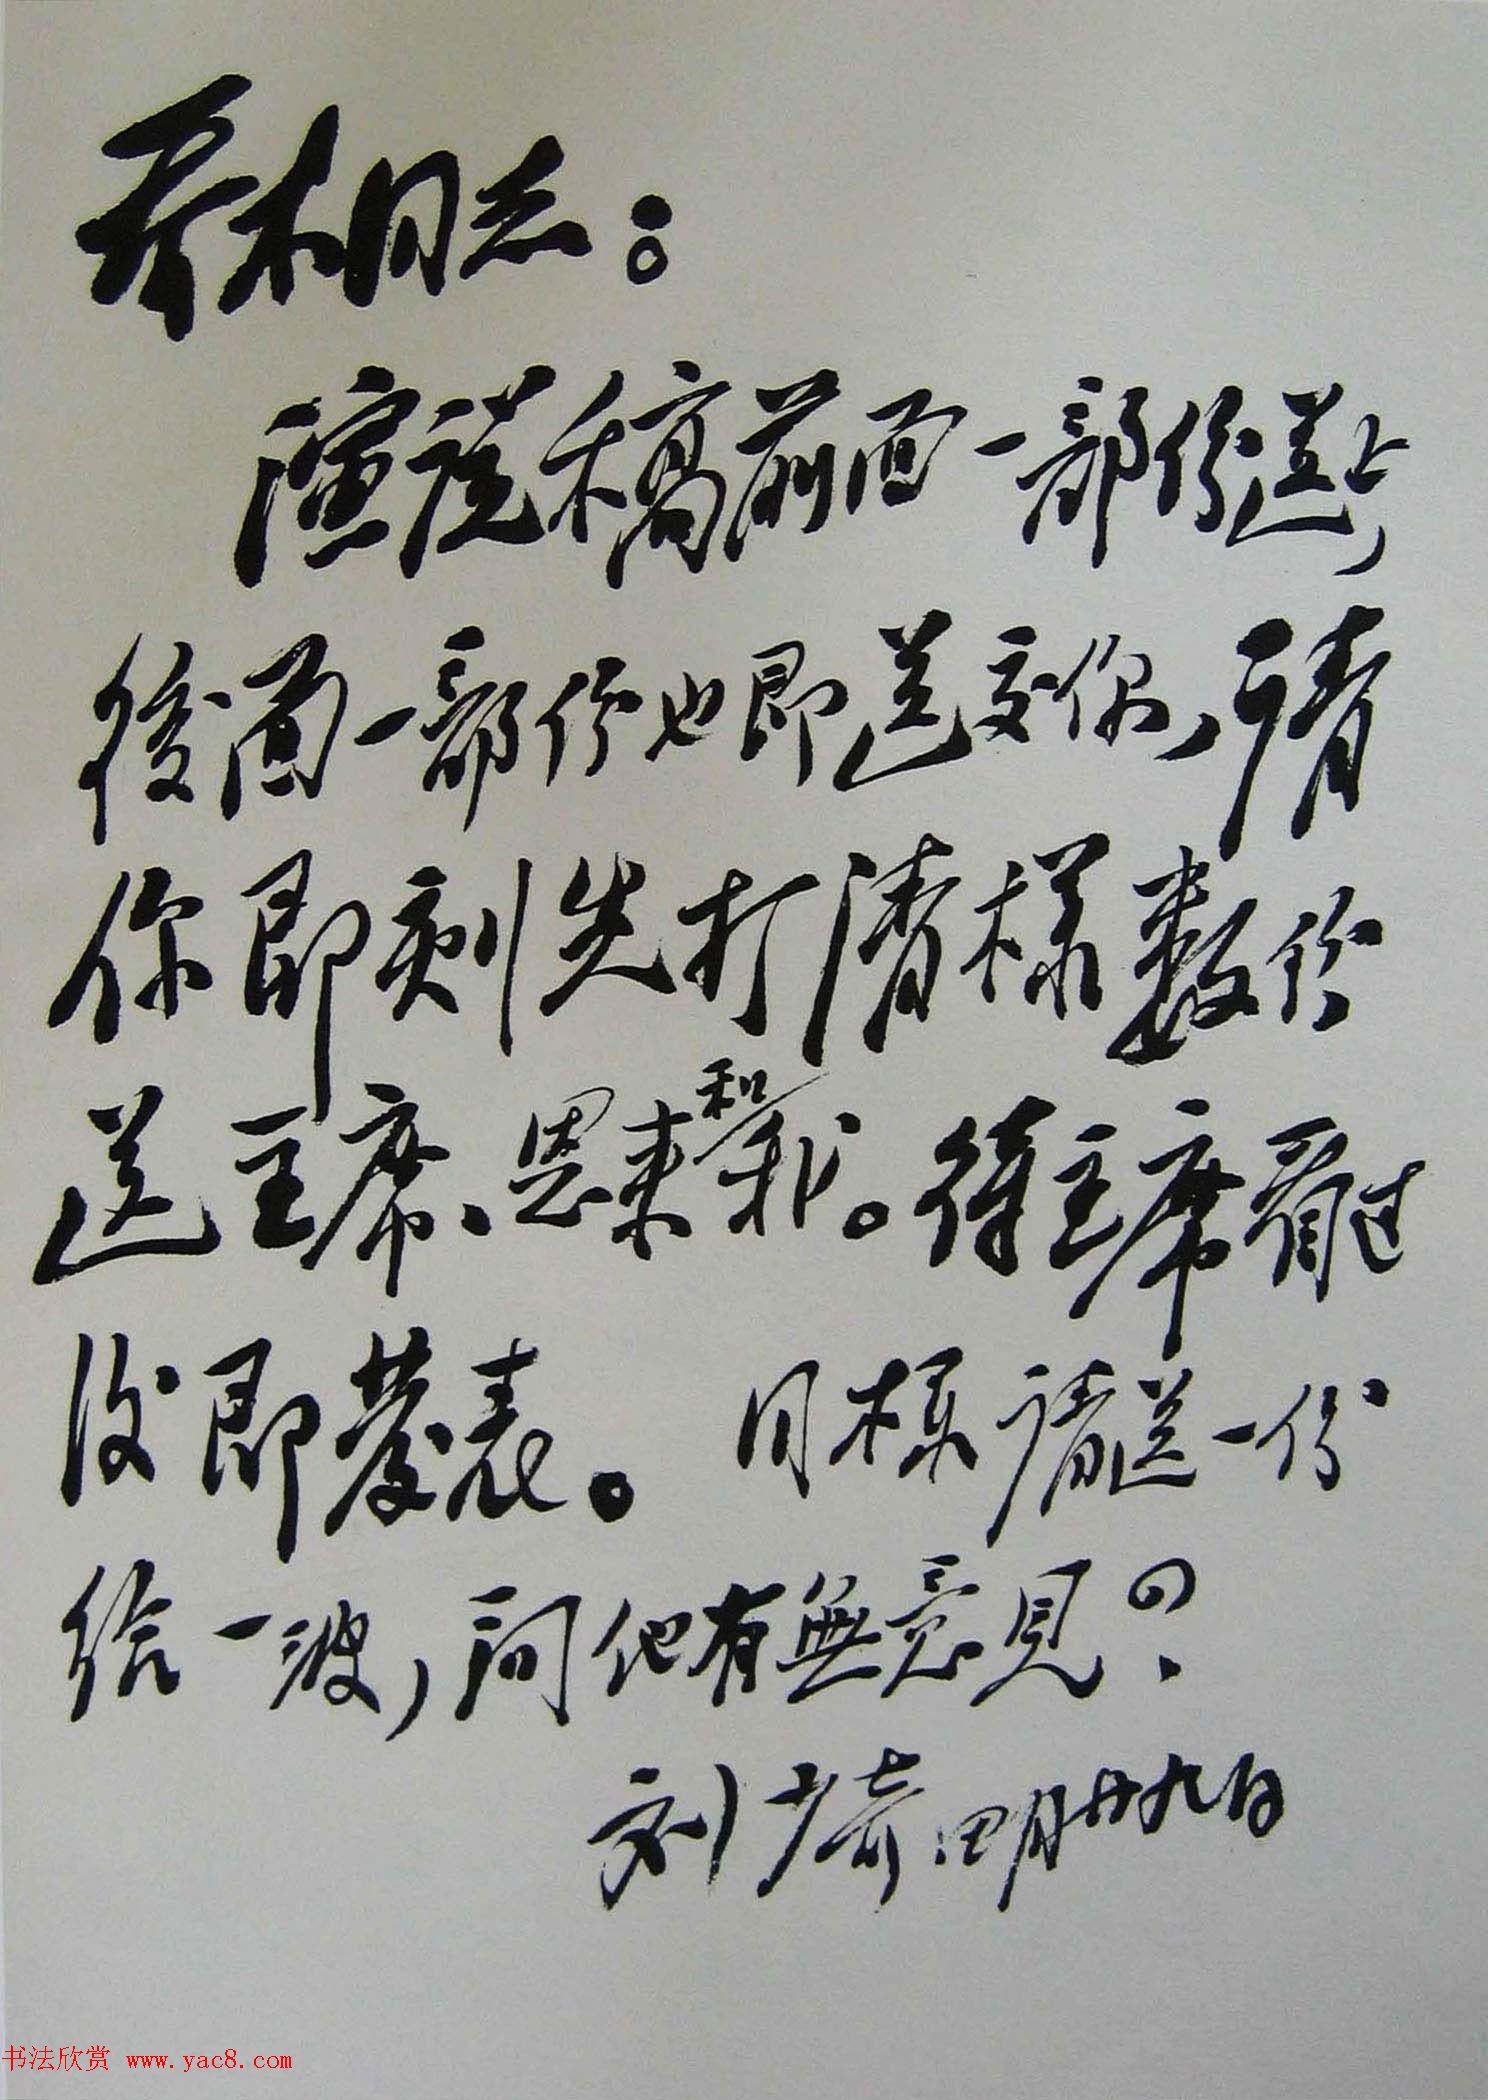 乔木同志：
演说稿前面一部份送上，
後面一部份也即送交你，请
你即刻先打清样数份
送主席、恩来和我。待主席看过
后即發表。同样请送一份
给一波，问他有無意见？
刘少奇 四月廿九日
书法欣赏 www.yac8.com